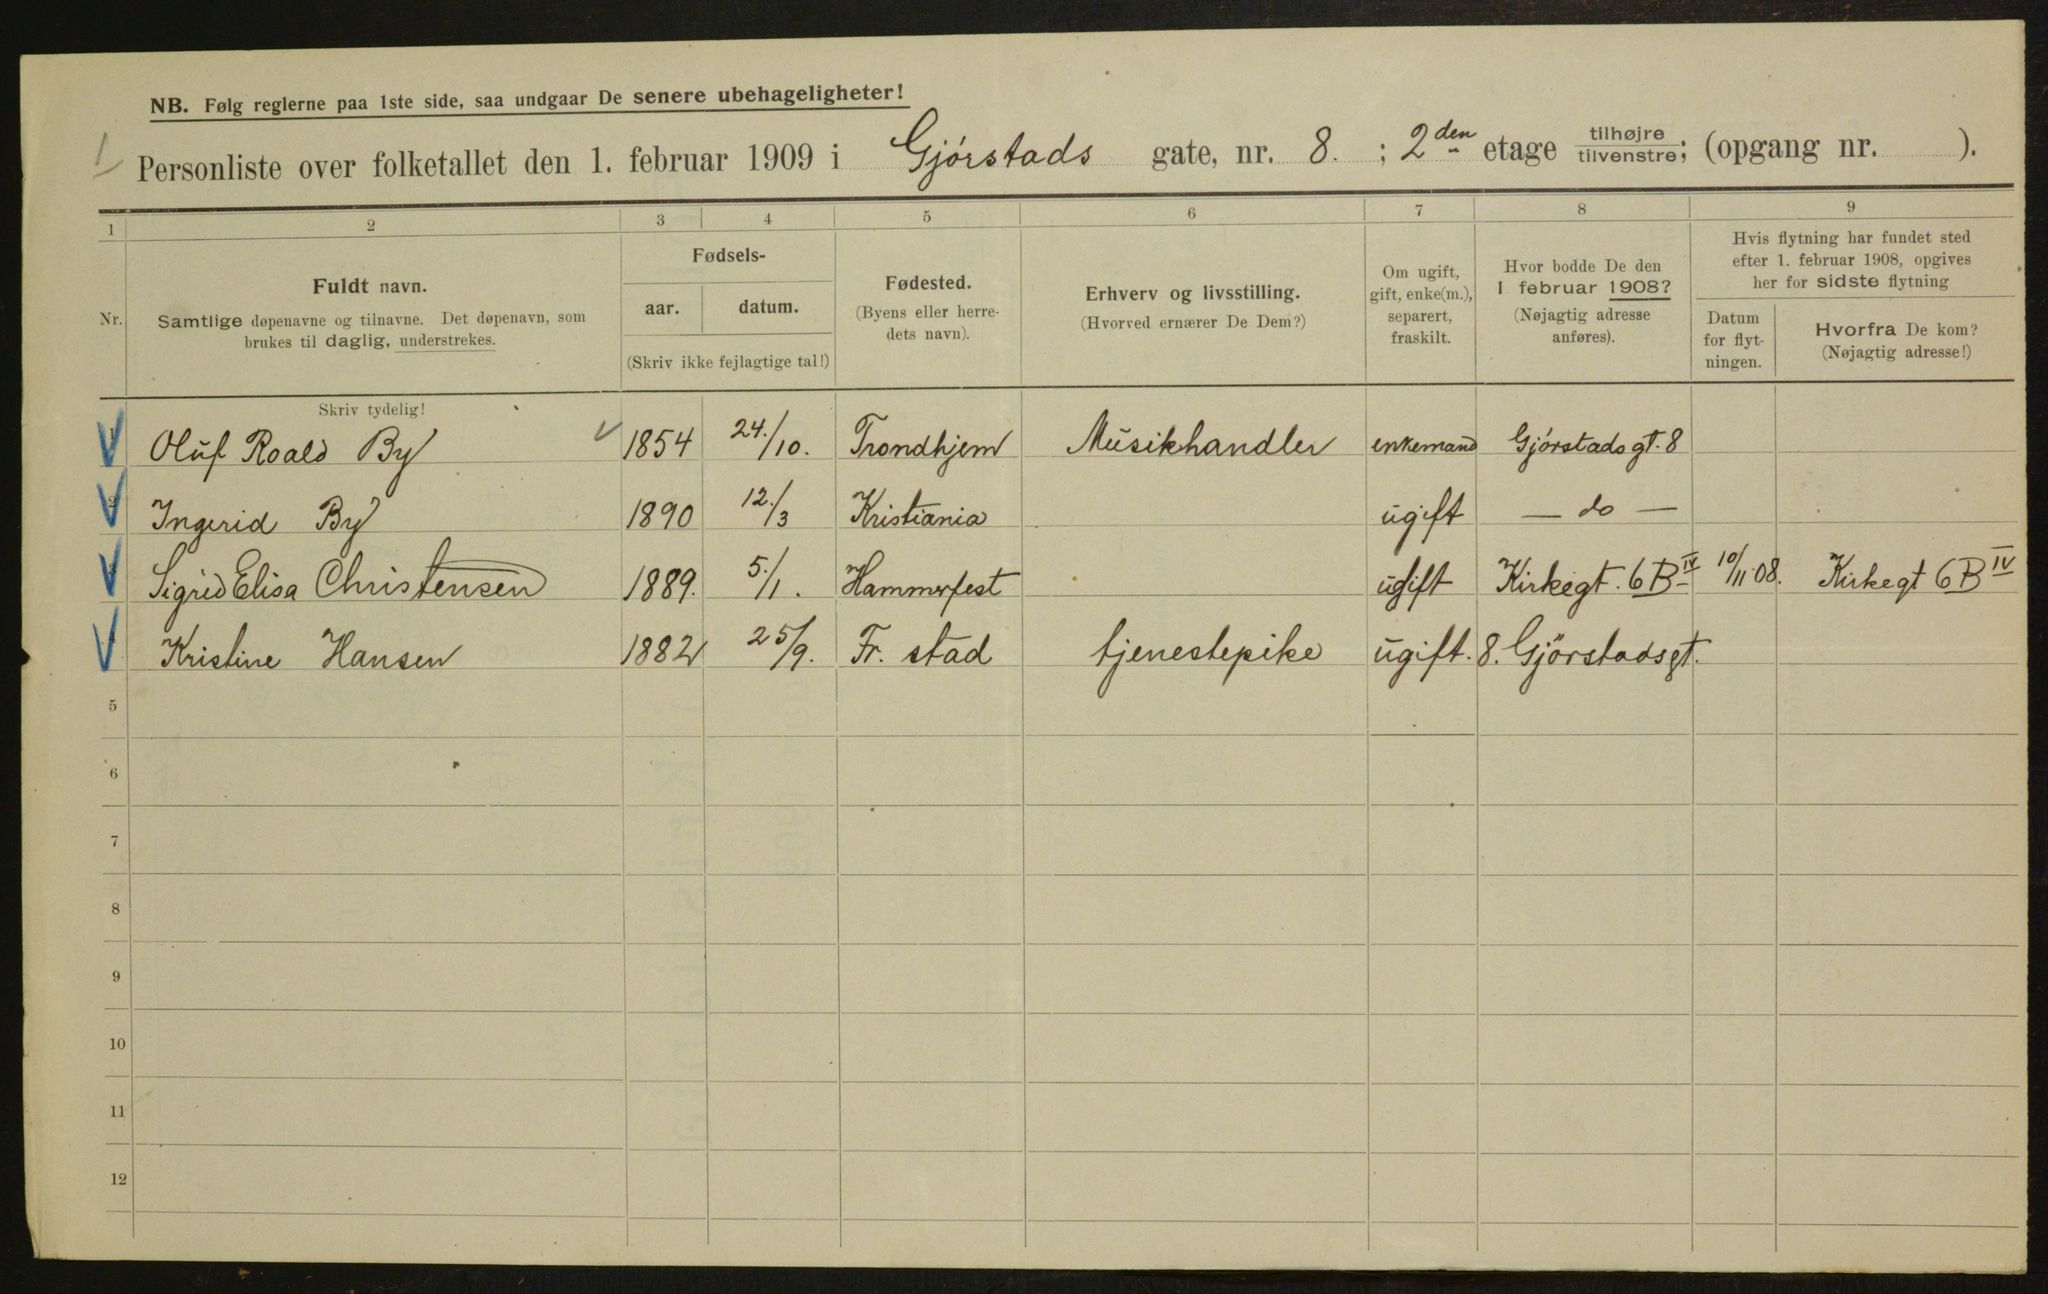 NB. Følg reglerne paa 1ste side, saa undgaar De senere ubehageligheter!
Personliste over folketallet den 1. februar 1909 i Gjørstads gate, nr. 8. ; 2den etage tilhøjre tilvenstre; (opgang nr. ).
1 2 3 4 5 6 7 8 9
Nr.
Fuldt navn.
Samtlige døpenavne og tilnavne. Det døpenavn, som
brukes til daglig, understrekes.
Fødsels-
aar. datum.
(Skriv ikke fejlagtige tal!)
Fødested.
(Byens eller herre-
dets navn).
Erhverv og livsstilling.
(Hvorved ernærer De Dem?)
Om ugift,
gift, enke(m.),
separert,
fraskilt.
Hvor bodde De den
1 februar 1908?
(Nøjagtig adresse
anføres).
Hvis flytning har fundet sted
efter 1. februar 1908, opgives
her for sidste flytning
Datum
for flyt-
ningen.
Hvorfra De kom?
(Nøjagtig adresse!)
Skriv tydelig!
1 Oluf Roald By 1854 24./10. Trondhjem Musikhandler enkemand Gjørstadsgt. 8
2 Ingerid By 1890 12./3 Kristiania ugift — do —
3 Sigrid Elisa Christensen 1889. 5./1. Hammerfest ugift Kirkegt. 6B IV 10/11.08. Kirkegt 6B IV
4 Kristine Hansen 1882 25/9. Fr. stad tjenestepike ugift. 8. Gjörstadsgt.
5
6
7
8
9
10
11
12